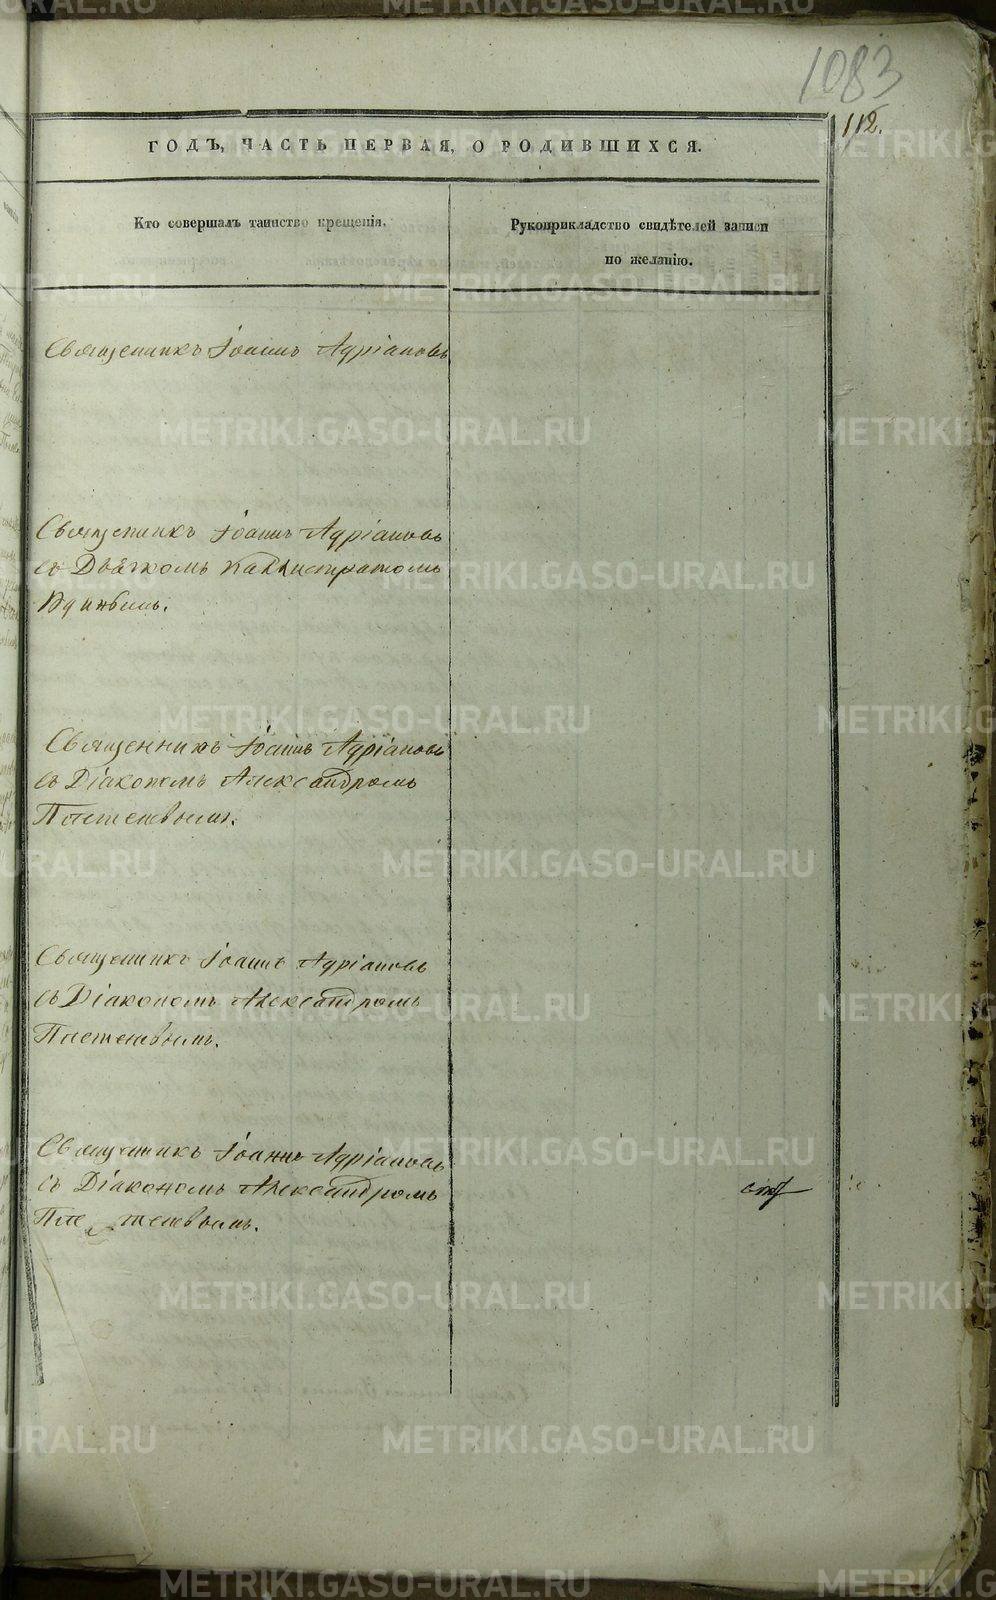 1083
112.
ГОДЪ, ЧАСТЬ ПЕРВАЯ, О РОДИВШИХСЯ.
Кто совершалъ таинство крещенія.
Рукоприкладство свидѣтелей записи
по желанію.
Священникъ Іоаннъ Адріановъ
Священникъ Іоаннъ Адріановъ
съ Дьячкомъ Каллистратомъ
Священникъ Іоаннъ Адріановъ
съ Діакономъ Александромъ
Плетеневымъ.
Священникъ Іоаннъ Адріановъ
съ Діакономъ Александромъ
Плетеневымъ.
Священникъ Іоаннъ Адріановъ
съ Діакономъ Александромъ
Плетеневымъ.
METRIKI.GASO-URAL.RU